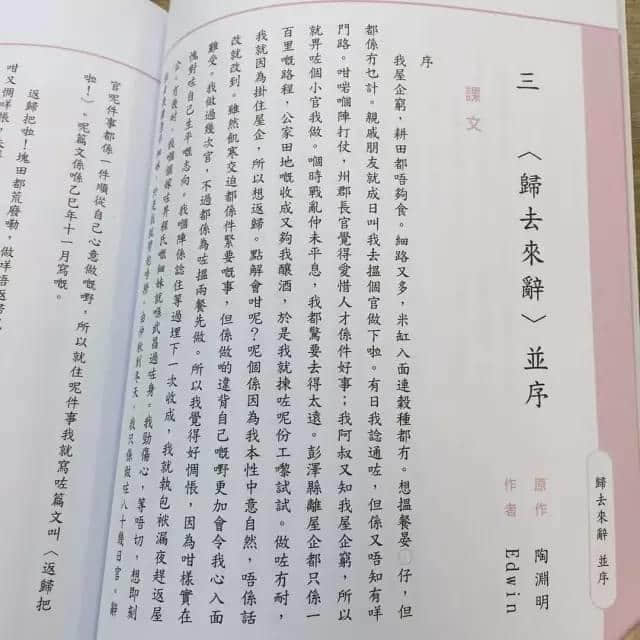 歸去來辭 並序
三 〈歸去來辭〉並序
原作 陶淵明
作者 Edwin
課文
序
我屋企窮，耕田都唔夠食。細路又多，米缸入面連穀種都冇。想搵餐晏仔，但
都係冇乜計。親戚朋友就成日叫我去搵個官做下啦。有日我諗通咗，但係又唔知有咩
門路。咁啱嗰陣打仗，州郡長官覺得愛惜人才係件好事；我阿叔又知我屋企窮，所以
就畀咗個小官我做。嗰時戰亂仲未平息，我都驚要去得太遠。彭澤縣離屋企都只係一
百里嘅路程，公家田地嘅收成又夠我釀酒，於是我就揀咗呢份工嚟試試。做咗冇耐，
我就因為掛住屋企，所以想返歸。點解會咁呢？呢個係因為我本性中意自然，唔係話
改就改到。雖然飢寒交迫都係件緊要嘅事，但係做啲違背自己嘅嘢更加會令我心入面
難受。我做過幾次官，不過都係為咗搵兩餐先做。所以我覺得好惆悵，因為咁樣實在
愧對咗自己生平嘅志向。我嗰陣係諗住等過埋下一次收成，我就執包袱漏夜趕返屋
企。冇幾時，我嗰個嫁咗畀程氏嘅細妹就喺武昌過咗身。我勁傷心，等唔切，想即刻
由仲秋到冬天，我只係做咗八十幾日官。辭
官呢件事都係一件順從自己心意做嘅嘢，所以就住呢件事我就寫咗篇文叫〈返歸把
啦！〉。呢篇文係喺乙巳年十一月寫嘅。
返歸把啦！塊田都荒廢嘞，做咩唔返歸